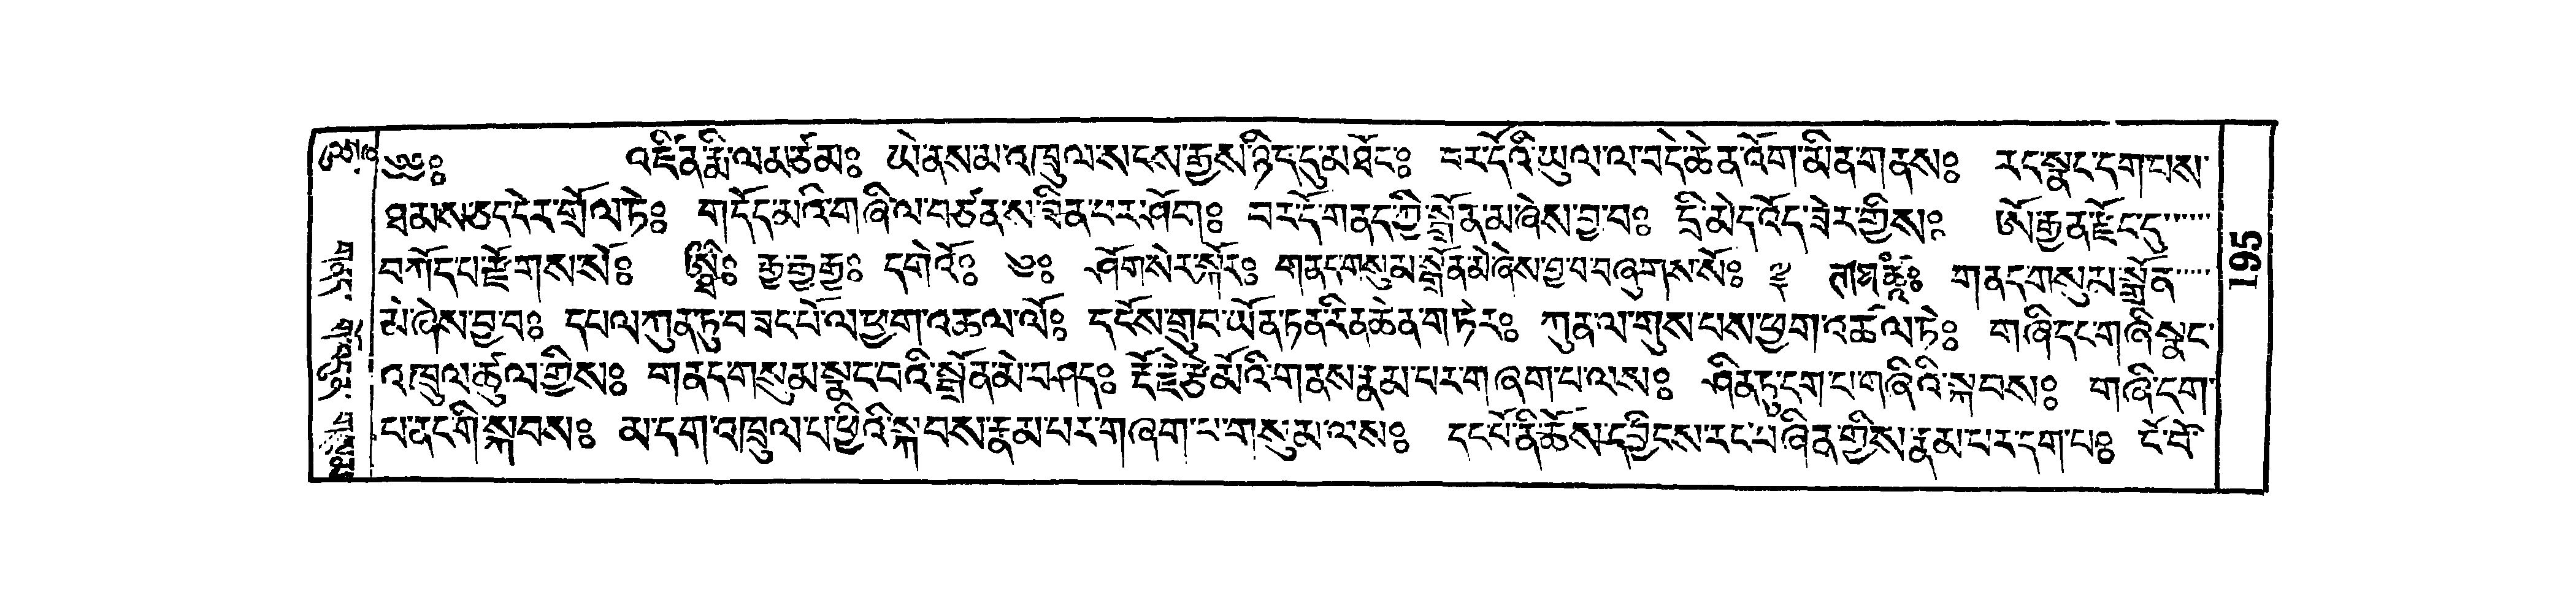 ༄༅༔ འཛིན་རྨི་ལམ་ཙམ༔ ཡེ་ནས་མ་འཁྲུལ་སངས་རྒྱས་ཉིད་དུ་མཐོང༔ བར་དོའི་ཡུལ་ལ་བདེ་ཆེན་འོག་མིན་གནས༔ རང་སྣང་དག་པས་
ཐམས་ཅད་དེར་གྲོལ་ཏེ༔ གདོད་མའི་གཞི་ལ་བཙན་ས་ཟིན་པར་ཤོག༔ བར་དོ་གནད་ཀྱི་སྒྲོན་མ་ཞེས་བྱ་བ༔ དྲི་མེད་འོད་ཟེར་གྱིས༔ ཨོ་རྒྱན་རྫོང་དུ་
བཀོད་པ་རྫོགས་སོ༔ ཨིཐི༔ རྒྱ་རྒྱ་རྒྱ༔ དགེའོ༔ ༧༔ ཤོག་སེར་སྐོར༔ གནད་གསུམ་སྒྲོན་མེ་ཞེས་བྱ་བ་བཞུགས་སོ༔ གནད་གསུམ་སྒྲོན་
མེ་ཞེས་བྱ་བ༔ དཔལ་ཀུན་ཏུ་བཟང་པོ་ལ་ཕྱག་འཚལ་ལོ༔ དངོས་གྲུབ་ཡོན་ཏན་རིན་ཆེན་གཏེར༔ ཀུན་ལ་གུས་པས་ཕྱག་འཚལ་ཏེ༔ གཞི་དང་གཞི་སྣང་
འཁྲུལ་ཚུལ་གྱིས༔ གནད་གསུམ་སྣང་བའི་སྒྲོན་མེ་བཤད༔ རྡོ་རྗེ་རྩེ་མོའི་གནས་རྣམ་པར་གཞག་པ་ལས༔ ཤིན་ཏུ་དག་པ་གཞིའི་སྐབས༔ གཞི་དག་
པ་ནང་གི་སྐབས༔ མ་དག་འཁྲུལ་པ་ཕྱིའི་སྐབས་རྣམ་པར་གཞག་པ་གསུམ་ལས༔ དང་པོ་ནི་ཆོས་དབྱིངས་རང་བཞིན་གྱིས་རྣམ་པར་དག་པ༔ ངོ་བོ་
195